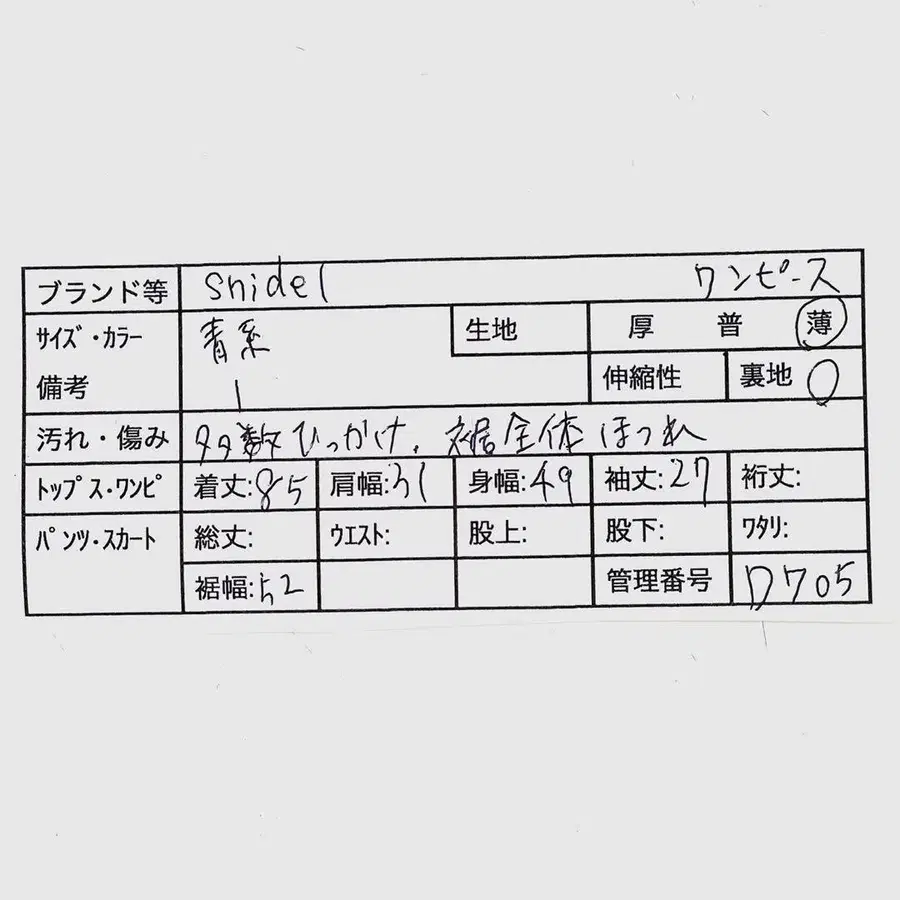 ブランド等 snidel ワンピース
サイズ・カラー 青系 生地 厚 普 薄
備考 1 伸縮性 裏地 ○
汚れ・傷み 多数ひっかけ、裾全体ほつれ
トップス・ワンピ 着丈:85 肩幅:31 身幅:49 袖丈:27 裄丈:
パンツ・スカート 総丈: ウエスト: 股上: 股下: ワタリ:
裾幅:52 管理番号 D705